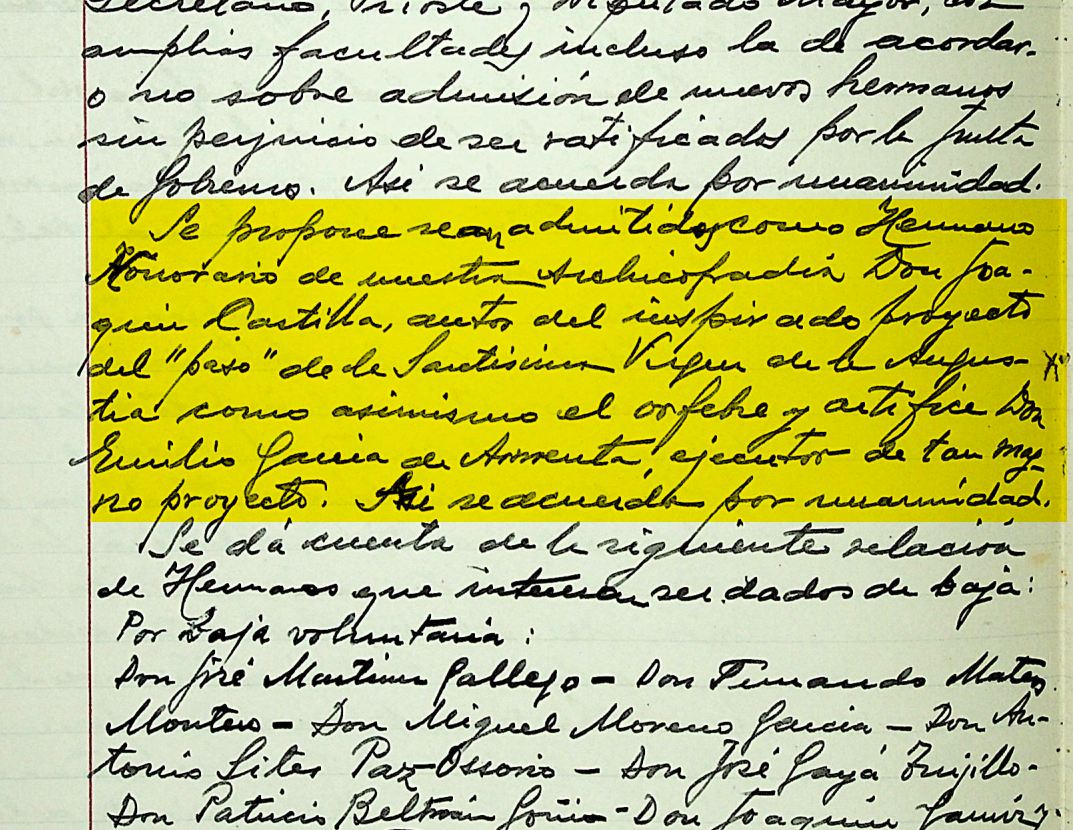 Secretario, Prioste y Diputado Mayor, con
amplias facultades incluso la de acordar
o no sobre admisión de nuevos hermanos
sin perjuicio de ser ratificados por la Junta
de Gobierno. Asi se acuerda por unanimidad.
Se propone sean admitidos como Hermano
Honorario de nuestra Archicofradía Don Joa-
quin Castilla, autor del inspirado proyecto
del "paso" de la Santisima Virgen de la Angus-
tia como asimismo el orfebre y artifice Don
Emilio Garcia de Armenta, ejecutor de tan mag-
no proyecto. Asi se acuerda por unanimidad.
Se dá cuenta de la siguiente relación
de Hermanos que interesan ser dados de baja:
Por baja voluntaria:
Don José Martinez Gallego - Don Fernando Mateos
Montero - Don Miguel Moreno Garcia - Don An-
tonio Siles Paz-Ossorio - Don José Gayá Trujillo -
Don Patricio Beltrán Goñi - Don Joaquin